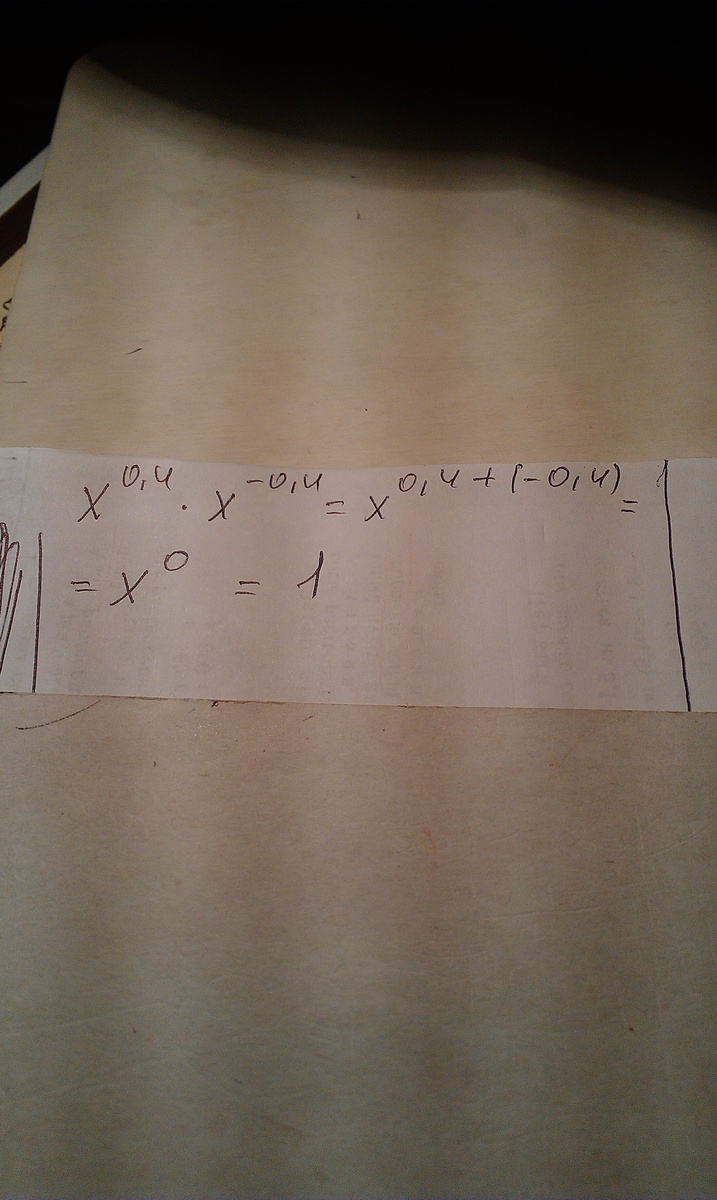 x^0,4 · x^-0,4 = x^0,4+(-0,4) =
= x^0 = 1